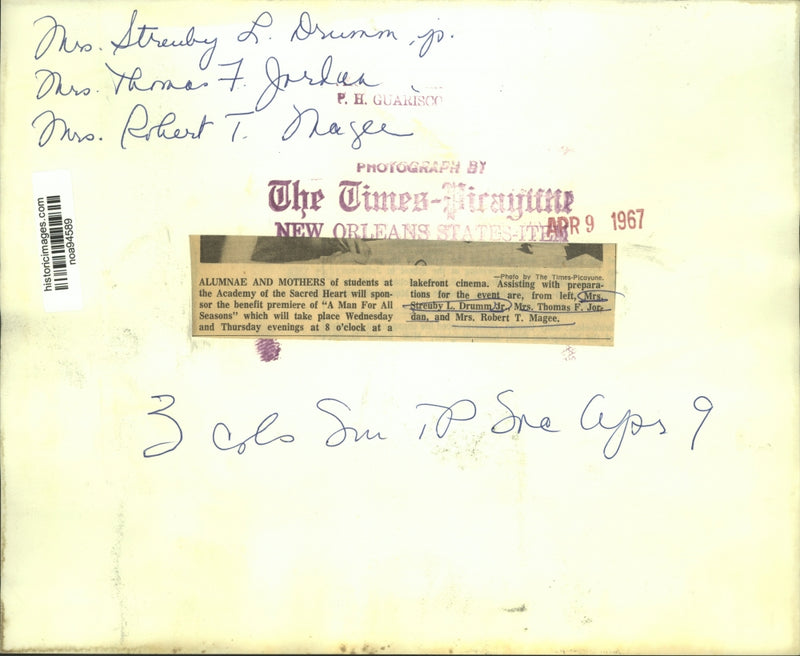 Mrs. Streuby L. Drumm, jr.
Mrs. Thomas F. Jordan
P. H. GUARISCO
Mrs. Robert T. Magee
historicimages.com
noa94589
PHOTOGRAPH BY
The Times-Picayune
APR 9 1967
NEW ORLEANS STATES-ITEM
—Photo by The Times-Picayune.
ALUMNAE AND MOTHERS of students at
the Academy of the Sacred Heart will spon-
sor the benefit premiere of "A Man For All
Seasons" which will take place Wednesday
and Thursday evenings at 8 o'clock at a
lakefront cinema. Assisting with prepara-
tions for the event are, from left, Mrs.
Streuby L. Drumm Jr., Mrs. Thomas F. Jor-
dan, and Mrs. Robert T. Magee.
3 cols Sun TP Apr 9